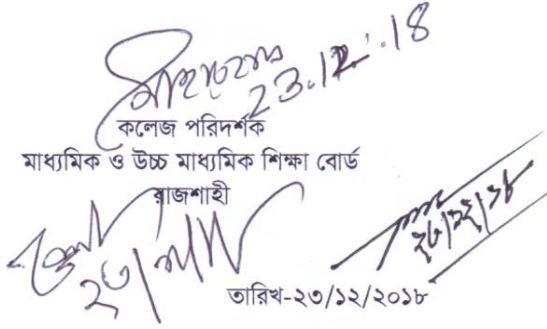 23.12.18
কলেজ পরিদর্শক
মাধ্যমিক ও উচ্চ মাধ্যমিক শিক্ষা বোর্ড
রাজশাহী
২৩/১২/১৮
তারিখ-২৩/১২/২০১৮